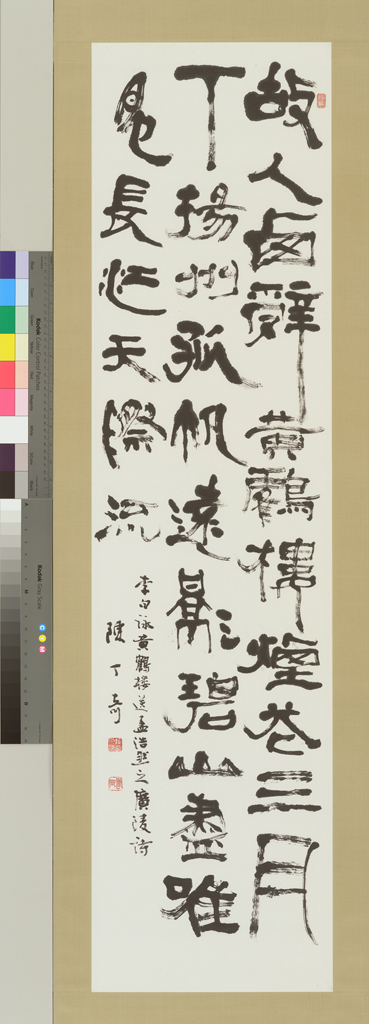 故人西辭黃鶴樓煙花三月
下揚州孤帆遠影碧山盡唯
見長江天際流
李白詠黃鶴樓送孟浩然之廣陵詩
陳丁奇
Kodak Color Control Patches
Kodak Gray Scale
C Y M